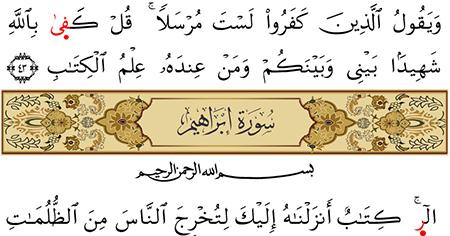 وَيَقُولُ ٱلَّذِينَ كَفَرُوا۟ لَسْتَ مُرْسَلًا ۚ قُلْ كَفَىٰ بِٱللَّهِ
شَهِيدًۢا بَيْنِى وَبَيْنَكُمْ وَمَنْ عِندَهُۥ عِلْمُ ٱلْكِتَٰبِ ٤٣
سُورَةُ إِبْرَاهِيمَ
بسم الله الرحمن الرحيم
الٓر ۚ كِتَٰبٌ أَنزَلْنَٰهُ إِلَيْكَ لِتُخْرِجَ ٱلنَّاسَ مِنَ ٱلظُّلُمَٰتِ